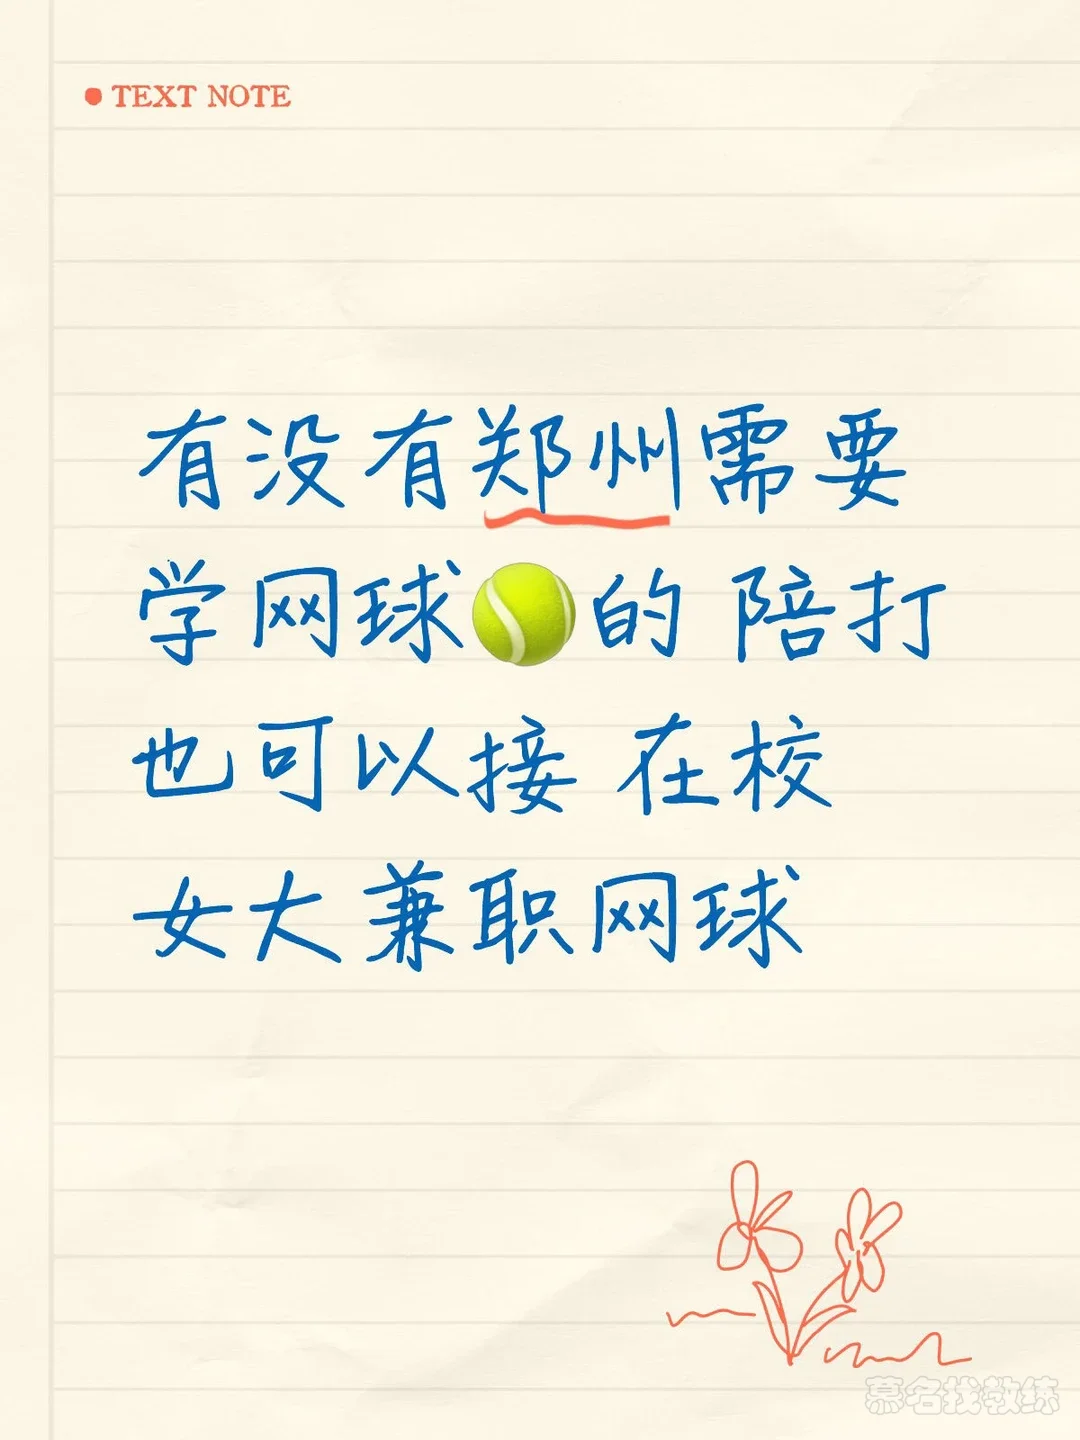 TEXT NOTE
有没有郑州需要
学网球🎾的 陪打
也可以接 在校
女大兼职网球
慕名找教练